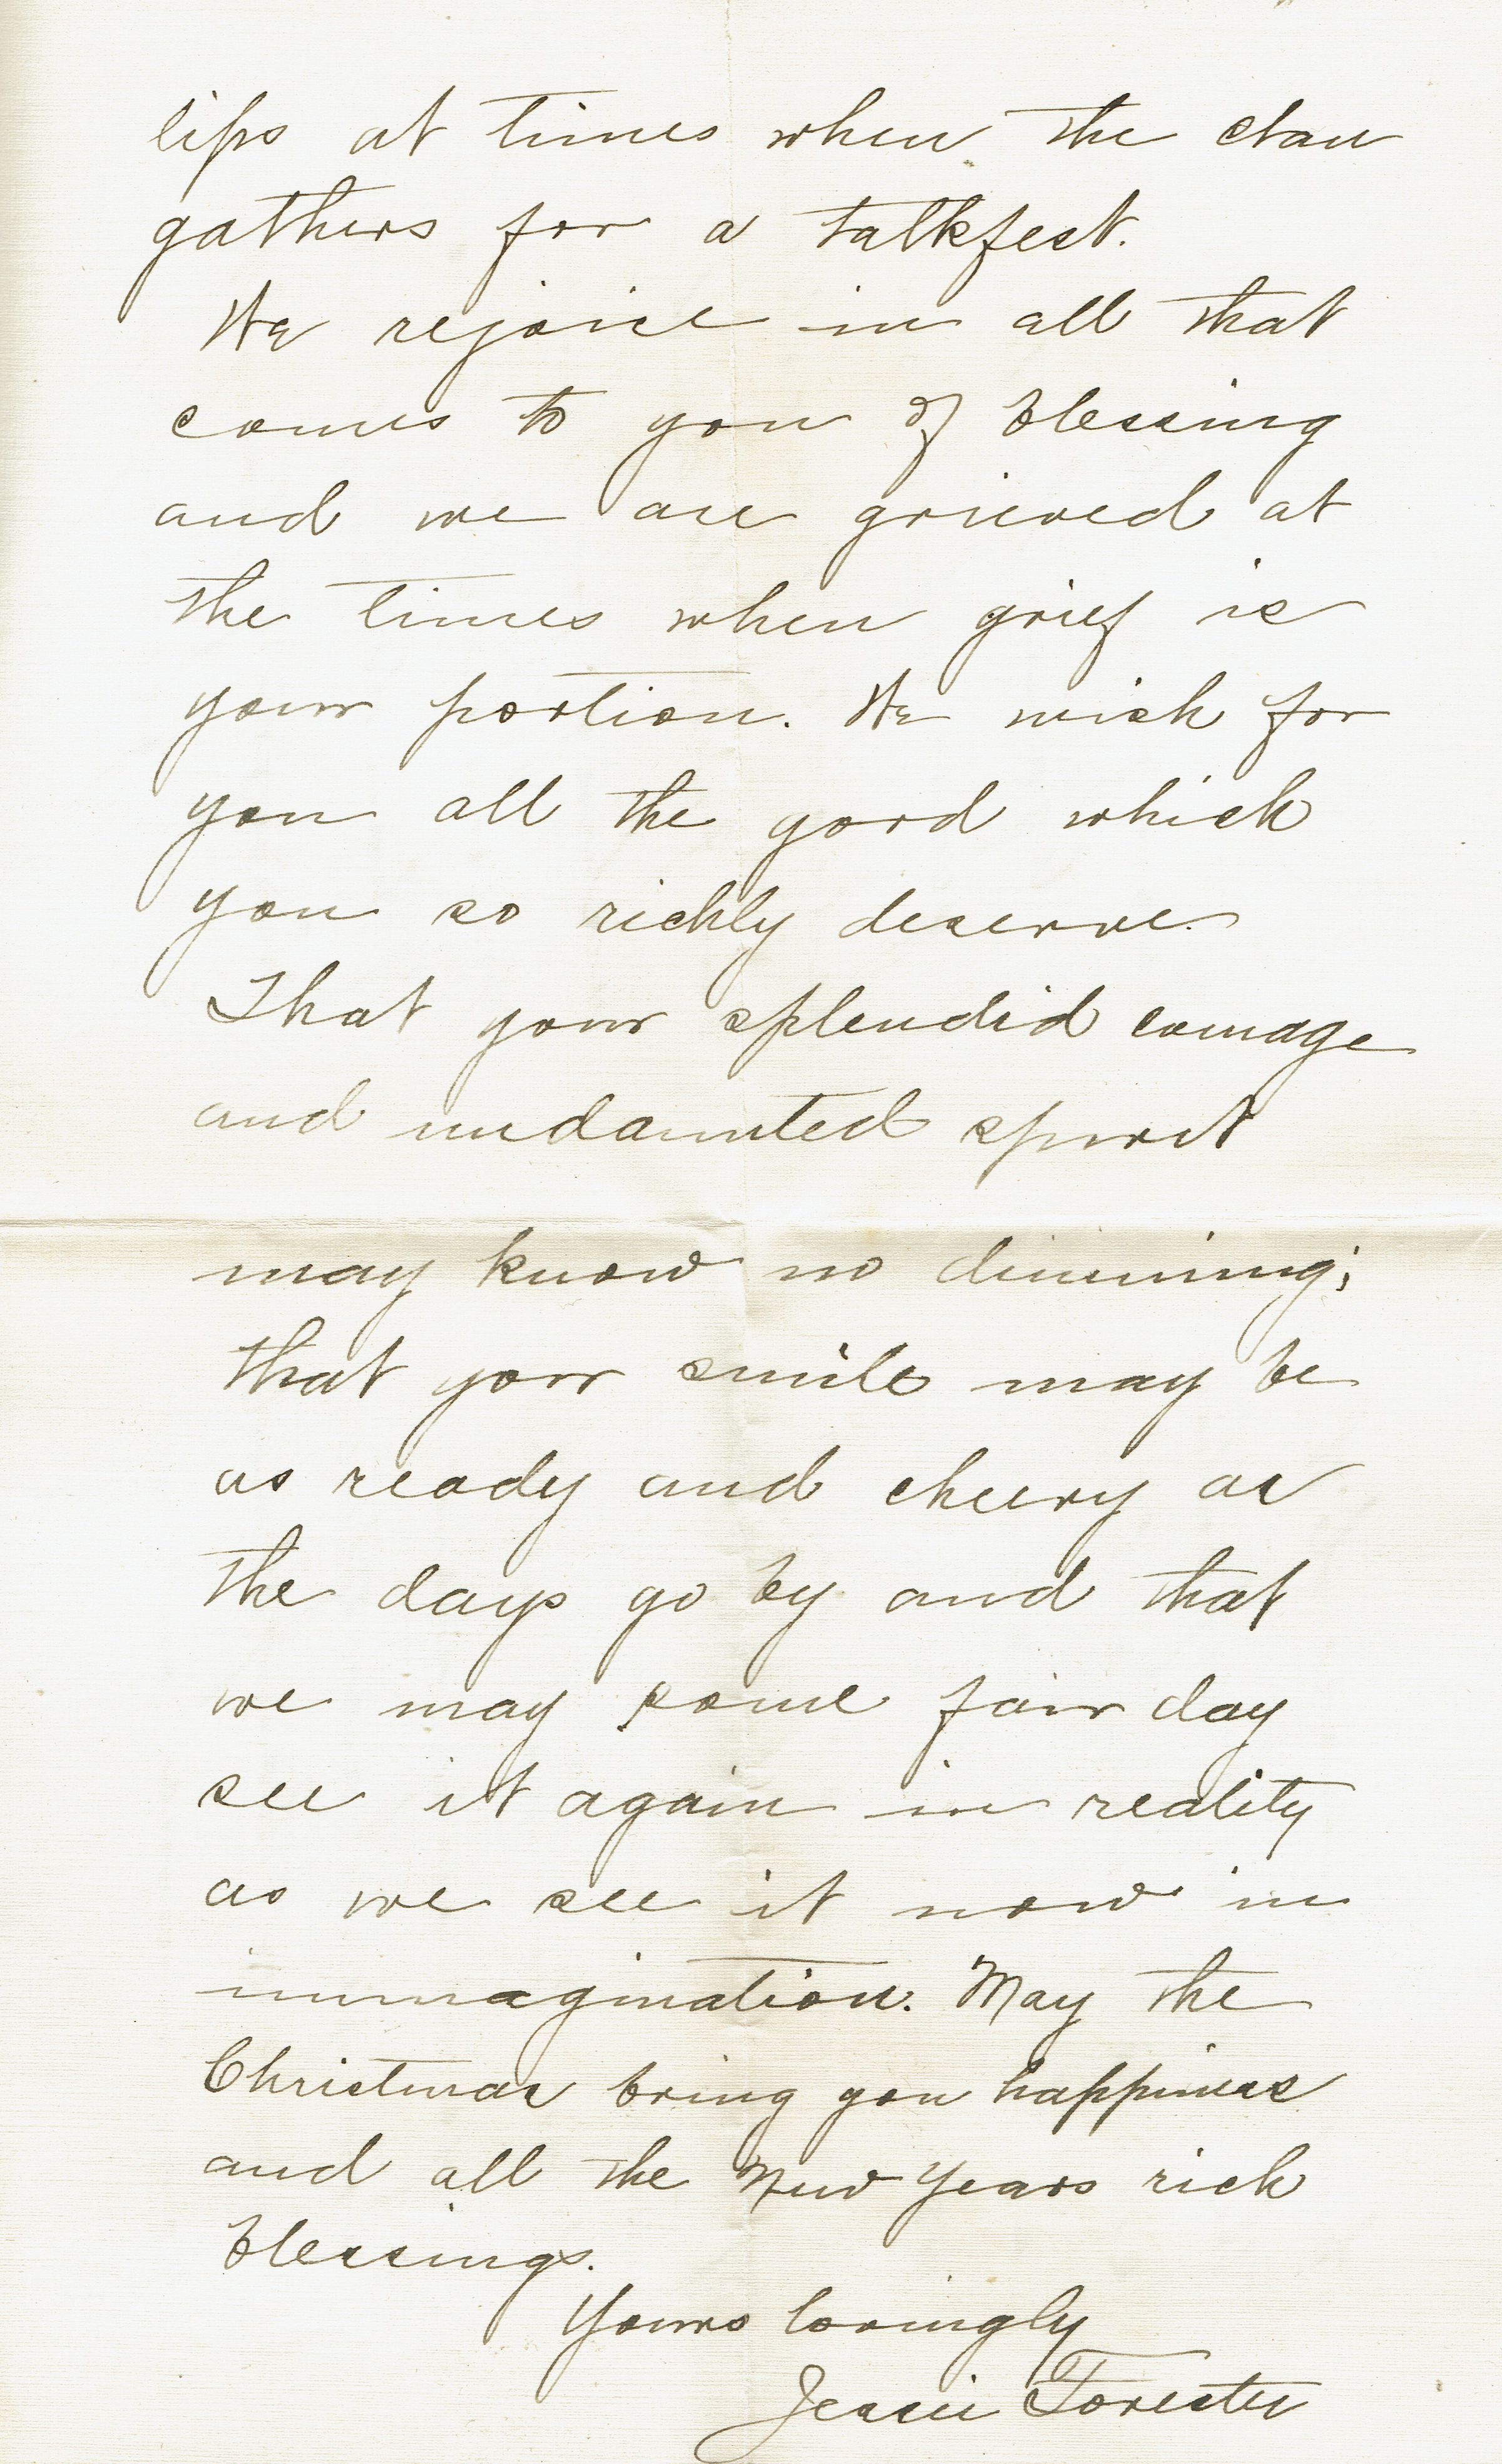 lips at times when the clan
gathers for a talkfest.
We rejoice in all that
comes to you of blessing
and we are grieved at
the times when grief is
your portion. We wish for
you all the good which
you so richly deserve.
That your splendid courage
and undaunted spirit
may know no dimming;
that your smile may be
as ready and cheery as
the days go by and that
we may some fair day
see it again in reality
as we see it now in
immagination. May the
Christmas bring you happiness
and all the New Years rich
blessings.
Yours lovingly
Jessie Forester